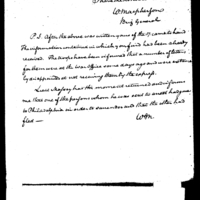 W Macpherson
Brig General
P.S. After the above was written yours of the 17, came to hand
The information contained in which you find had been already
received. The troops have been informed that a number of letters
for them were at the war office some days ago and were extremely
disappointed at not receiving them by the express.
Lieut has this moment returned and informs
me that one of the persons whom he was sent to
to Philadelphia in order to surrender and that the other had
fled —
W M.